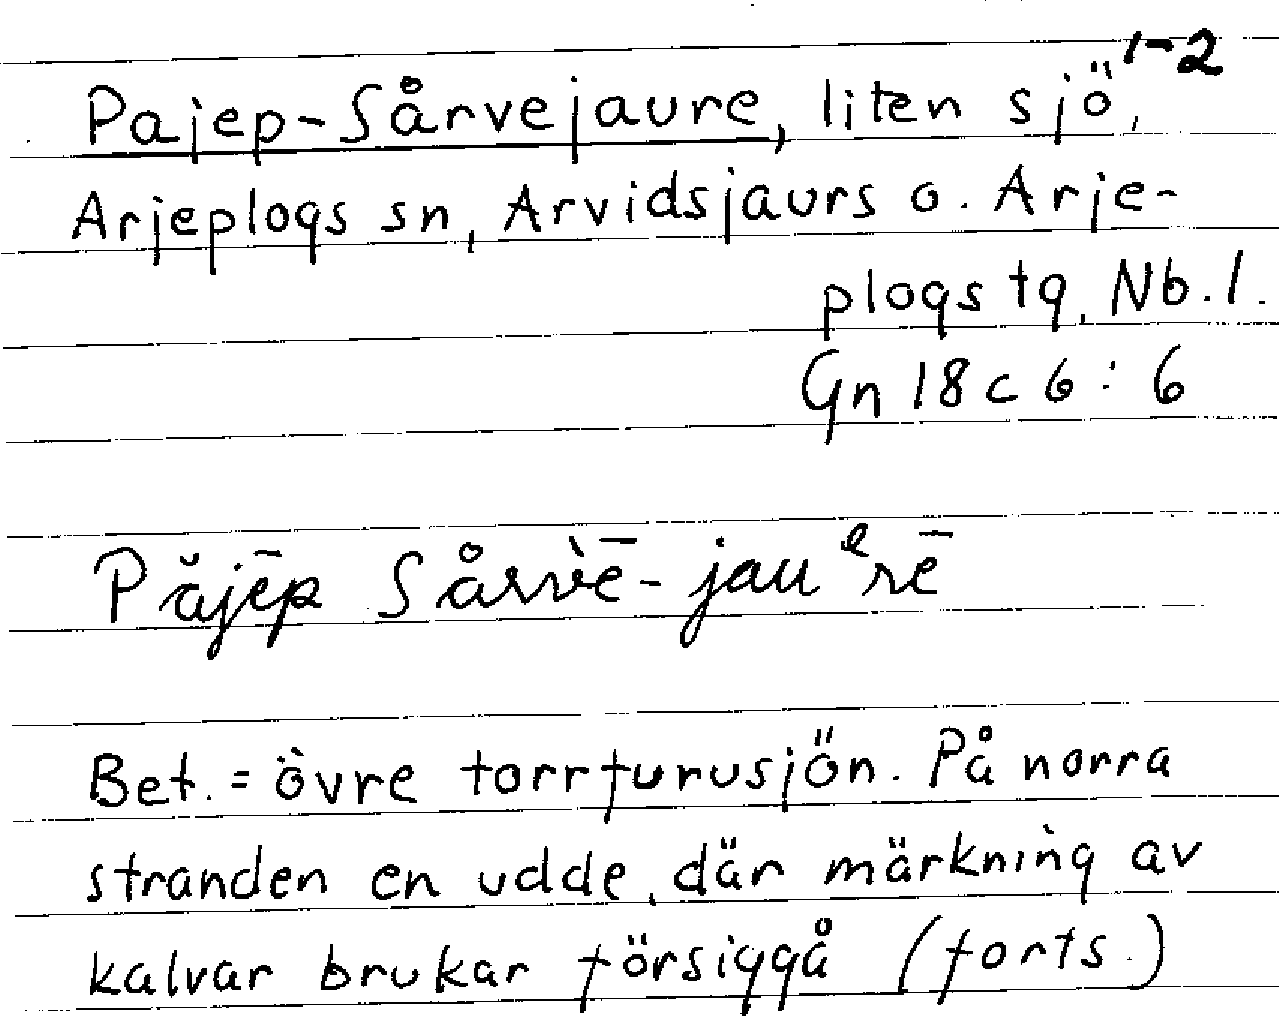 Pajep-Sårvejaure, liten sjö, 1-2
Arjeplogs sn, Arvidsjaurs o. Arje-
plogs tg, Nb. l.
Gn 18 c 6 : 6
Păjēp Sårvè̄-jauᵉrē
Bet. = övre torrfurusjön. På norra
stranden en udde, där märkning av
kalvar brukar försiggå (forts.)